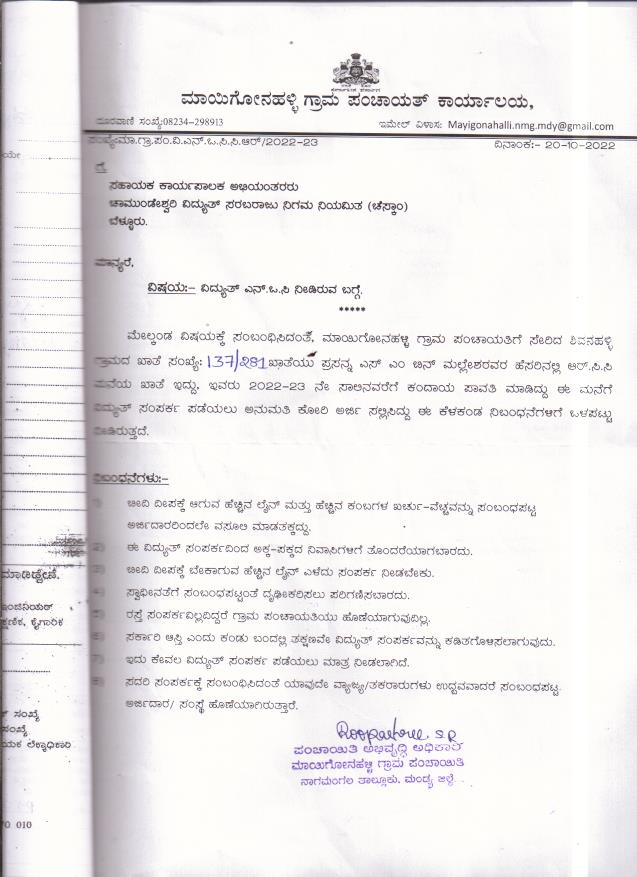 ಮಾಯಿಗೋನಹಳ್ಳಿ ಗ್ರಾಮ ಪಂಚಾಯತ್ ಕಾರ್ಯಾಲಯ,
ದೂರವಾಣಿ ಸಂಖ್ಯೆ:08234-298913 ಇಮೇಲ್ ವಿಳಾಸ: Mayigonahalli.nmg.mdy@gmail.com
ಸಂಖ್ಯೆ:ಮಾ.ಗ್ರಾ.ಪಂ.ವಿ.ಎನ್.ಒ.ಸಿ.ಸಿ.ಆರ್/2022-23 ದಿನಾಂಕ:- 20-10-2022
ಗೆ,
ಸಹಾಯಕ ಕಾರ್ಯಪಾಲಕ ಅಭಿಯಂತರರು
ಚಾಮುಂಡೇಶ್ವರಿ ವಿದ್ಯುತ್ ಸರಬರಾಜು ನಿಗಮ ನಿಯಮಿತ (ಚೆಸ್ಕಾಂ)
ಬೆಳ್ಳೂರು.
ಮಾನ್ಯರೆ,
ವಿಷಯ:- ವಿದ್ಯುತ್ ಎನ್.ಒ.ಸಿ ನೀಡಿರುವ ಬಗ್ಗೆ.
*****
ಮೇಲ್ಕಂಡ ವಿಷಯಕ್ಕೆ ಸಂಬಂಧಿಸಿದಂತೆ, ಮಾಯಿಗೋನಹಳ್ಳಿ ಗ್ರಾಮ ಪಂಚಾಯತಿಗೆ ಸೇರಿದ ಶಿವನಹಳ್ಳಿ
ಗ್ರಾಮದ ಖಾತೆ ಸಂಖ್ಯೆ: 137/281 ಖಾತೆಯು ಪ್ರಸನ್ನ ಎಸ್ ಎಂ ಬಿನ್ ಮಲ್ಲೇಶರವರ ಹೆಸರಿನಲ್ಲಿ ಆರ್.ಸಿ.ಸಿ
ಮನೆಯ ಖಾತೆ ಇದ್ದು, ಇವರು 2022-23 ನೇ ಸಾಲಿನವರೆಗೆ ಕಂದಾಯ ಪಾವತಿ ಮಾಡಿದ್ದು ಈ ಮನೆಗೆ
ವಿದ್ಯುತ್ ಸಂಪರ್ಕ ಪಡೆಯಲು ಅನುಮತಿ ಕೋರಿ ಅರ್ಜಿ ಸಲ್ಲಿಸಿದ್ದು ಈ ಕೆಳಕಂಡ ನಿಬಂಧನೆಗಳಿಗೆ ಒಳಪಟ್ಟು
ನೀಡಿರುತ್ತದೆ.
ನಿಬಂಧನೆಗಳು:-
1) ಬೀದಿ ದೀಪಕ್ಕೆ ಆಗುವ ಹೆಚ್ಚಿನ ಲೈನ್ ಮತ್ತು ಹೆಚ್ಚಿನ ಕಂಬಗಳ ಖರ್ಚು-ವೆಚ್ಚವನ್ನು ಸಂಬಂಧಪಟ್ಟ
ಅರ್ಜಿದಾರರಿಂದಲೇ ವಸೂಲಿ ಮಾಡತಕ್ಕದ್ದು.
2) ಈ ವಿದ್ಯುತ್ ಸಂಪರ್ಕದಿಂದ ಅಕ್ಕ-ಪಕ್ಕದ ನಿವಾಸಿಗಳಿಗೆ ತೊಂದರೆಯಾಗಬಾರದು.
3) ಬೀದಿ ದೀಪಕ್ಕೆ ಬೇಕಾಗುವ ಹೆಚ್ಚಿನ ಲೈನ್ ಎಳೆದು ಸಂಪರ್ಕ ನೀಡಬೇಕು.
4) ಸ್ವಾಧೀನತೆಗೆ ಸಂಬಂಧಪಟ್ಟಂತೆ ದೃಢೀಕರಿಸಲು ಪರಿಗಣಿಸಬಾರದು.
5) ರಸ್ತೆ ಸಂಪರ್ಕವಿಲ್ಲದಿದ್ದರೆ ಗ್ರಾಮ ಪಂಚಾಯತಿಯು ಹೊಣೆಯಾಗುವುದಿಲ್ಲ.
6) ಸರ್ಕಾರಿ ಆಸ್ತಿ ಎಂದು ಕಂಡು ಬಂದಲ್ಲಿ ತಕ್ಷಣವೇ ವಿದ್ಯುತ್ ಸಂಪರ್ಕವನ್ನು ಕಡಿತಗೊಳಿಸಲಾಗುವುದು.
7) ಇದು ಕೇವಲ ವಿದ್ಯುತ್ ಸಂಪರ್ಕ ಪಡೆಯಲು ಮಾತ್ರ ನೀಡಲಾಗಿದೆ.
8) ಸದರಿ ಸಂಪರ್ಕಕ್ಕೆ ಸಂಬಂಧಿಸಿದಂತೆ ಯಾವುದೇ ವ್ಯಾಜ್ಯ/ತಕರಾರುಗಳು ಉದ್ಭವವಾದರೆ ಸಂಬಂಧಪಟ್ಟ
ಅರ್ಜಿದಾರ/ ಸಂಸ್ಥೆ ಹೊಣೆಯಾಗಿರುತ್ತಾರೆ.
Roopashree. S.R
ಪಂಚಾಯಿತಿ ಅಭಿವೃದ್ಧಿ ಅಧಿಕಾರಿ
ಮಾಯಿಗೋನಹಳ್ಳಿ ಗ್ರಾಮ ಪಂಚಾಯಿತಿ
ನಾಗಮಂಗಲ ತಾಲ್ಲೂಕು, ಮಂಡ್ಯ ಜಿಲ್ಲೆ.
ಮಾಡಿದ್ದೇನೆ.
ಇಂಜಿನಿಯರ್
ಕೈಗಾರಿಕ
ಸಂಖ್ಯೆ
ಸಂಖ್ಯೆ
ಯಕ ಲೆಕ್ಕಾಧಿಕಾರಿ
70 010